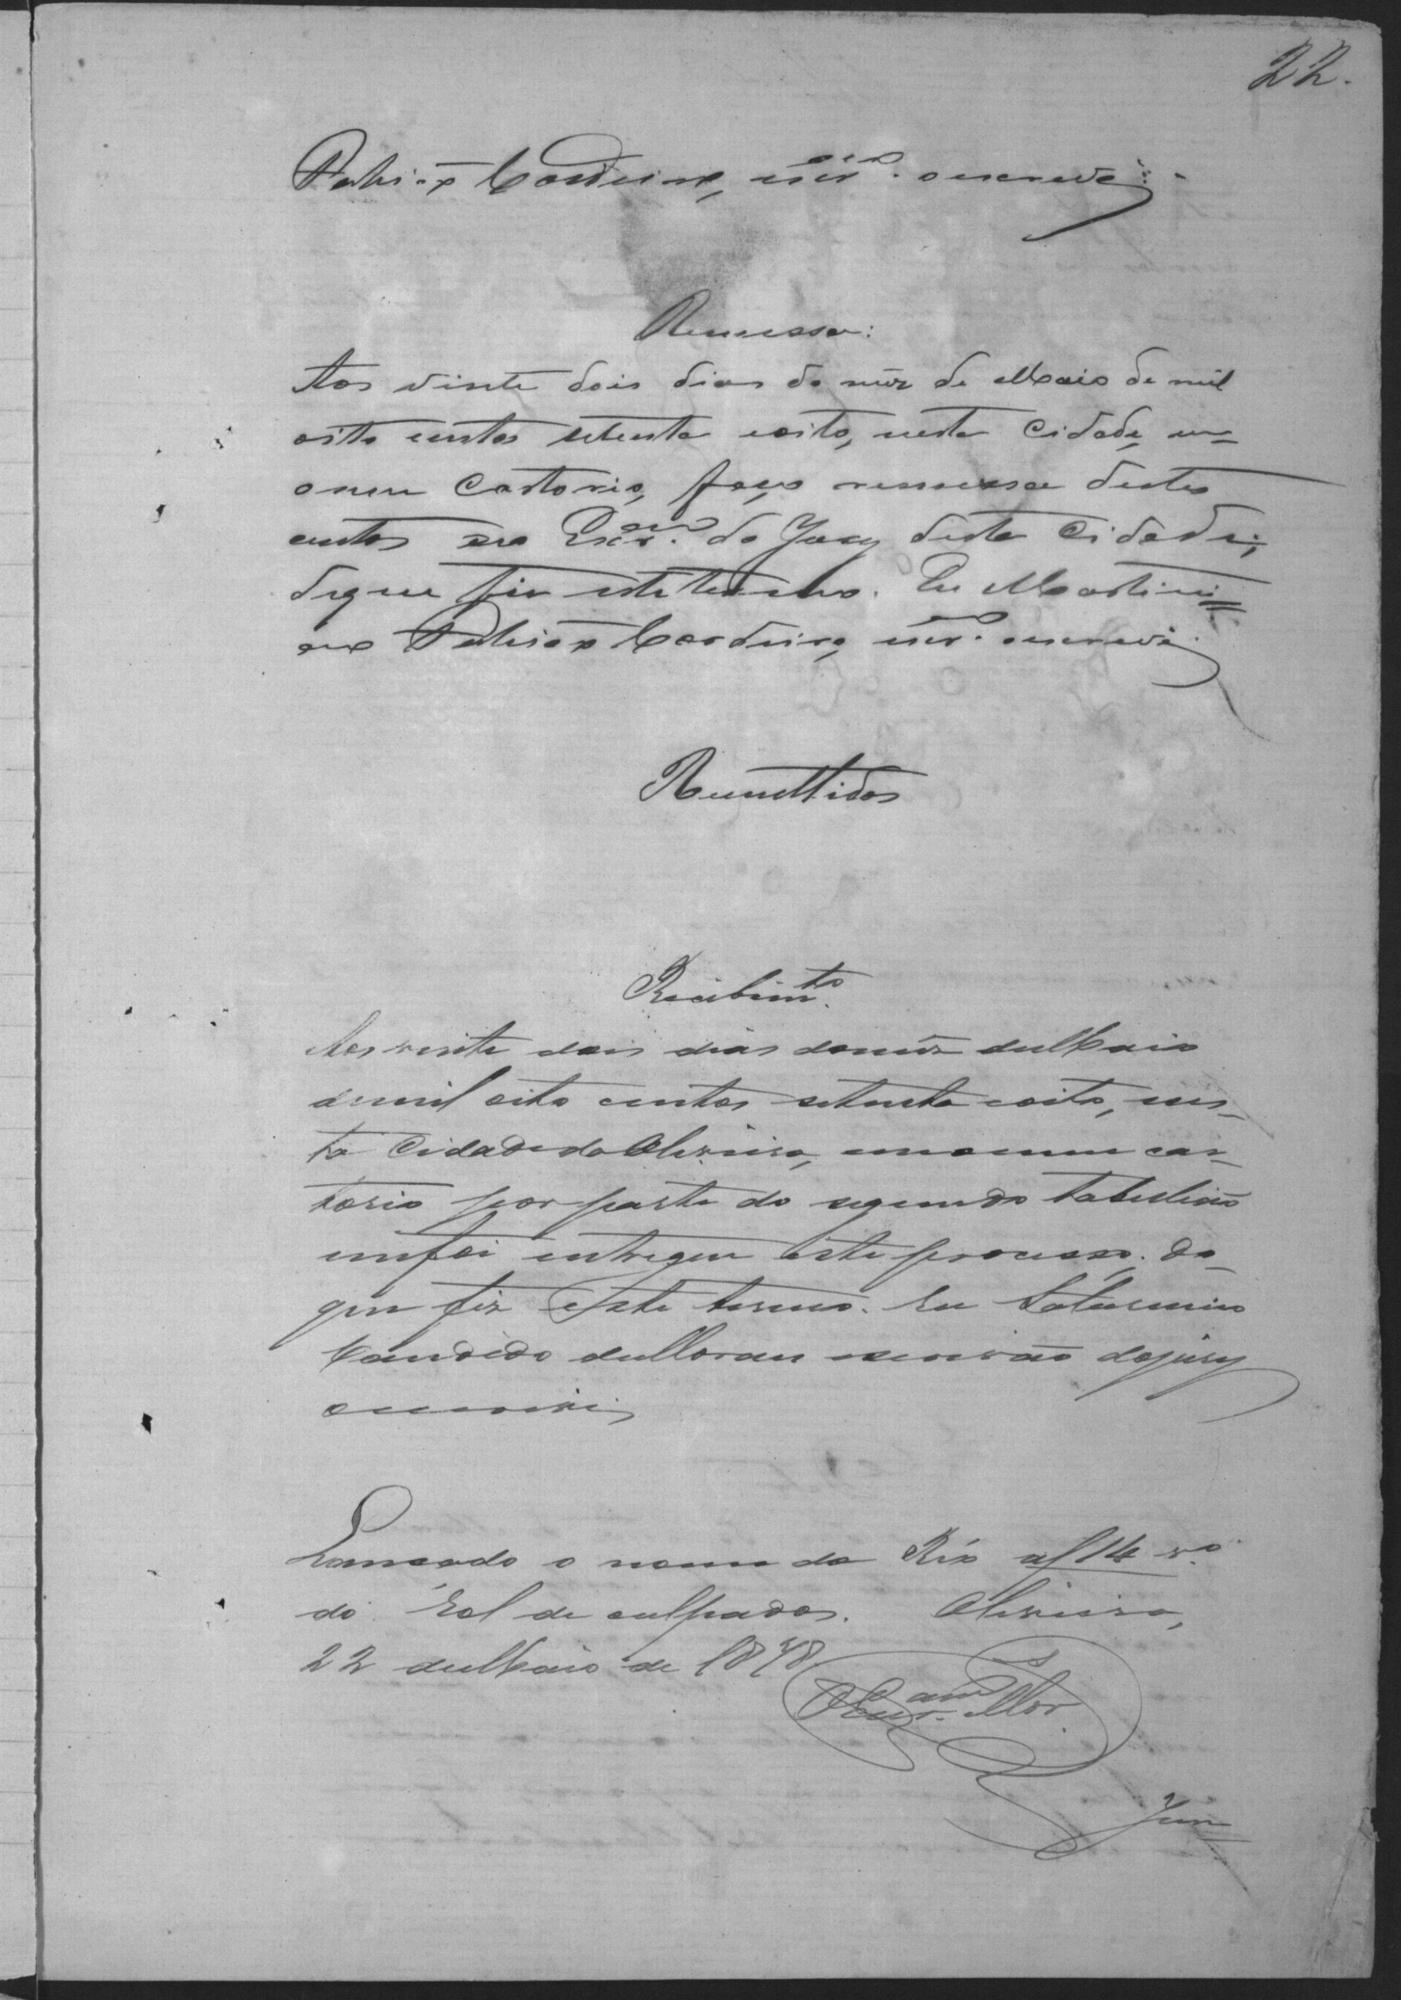 22.
Patricio Cordeiro, escr.m o escrevi.
Remessa:
Aos vinte dois dias do mez de Maio de mil
oito centos setenta e oito, nesta Cidade, em
o meu Cartorio, faço remessa destes
autos ao Escr.m do Jury desta Cidade;
de que fiz este termo. Eu Martini=
ano Patricio Cordeiro, escr.m o escrevi.
Remettidos
Recebim.to
Aos vinte dois dias do mez de Maio
de mil oito centos setenta e oito, nes-
ta Cidade da Oliveira, em o meu car-
torio por parte do segundo tabelião
me foi entregue este processo. Do
que fiz este termo. Eu Saturnino
Candido de Moraes escrivão do jury
o escrevi.
Lançado o nome do Réo a fl 14 v.o
do Rol de culpados. Oliveira,
22 de Maio de 1878.
O Escr.am Mor.s
Jun